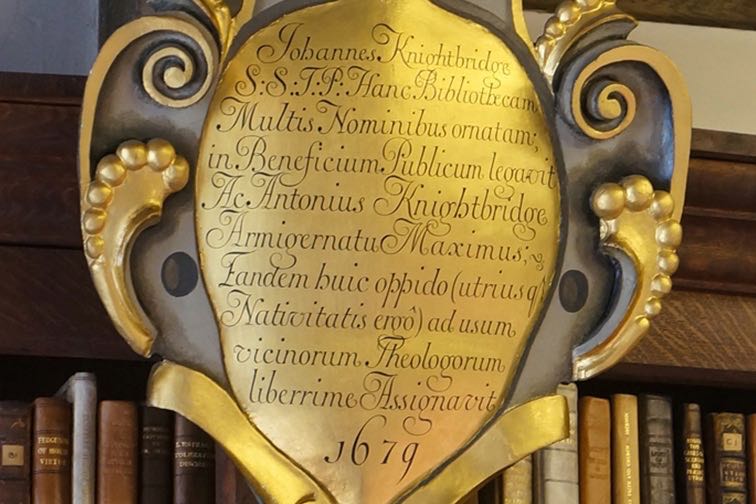 Johannes Knightbridge
S:S:T:P: Hanc Bibliothecam
Multis Nominibus ornatam;
in Beneficium Publicum legavit
Ac Antonius Knightbridge
Armigernatu Maximus;
Eandem huic oppido (utrius q)
Nativitatis ergô) ad usum
vicinorum Theologorum
liberrime Assignavit
1679